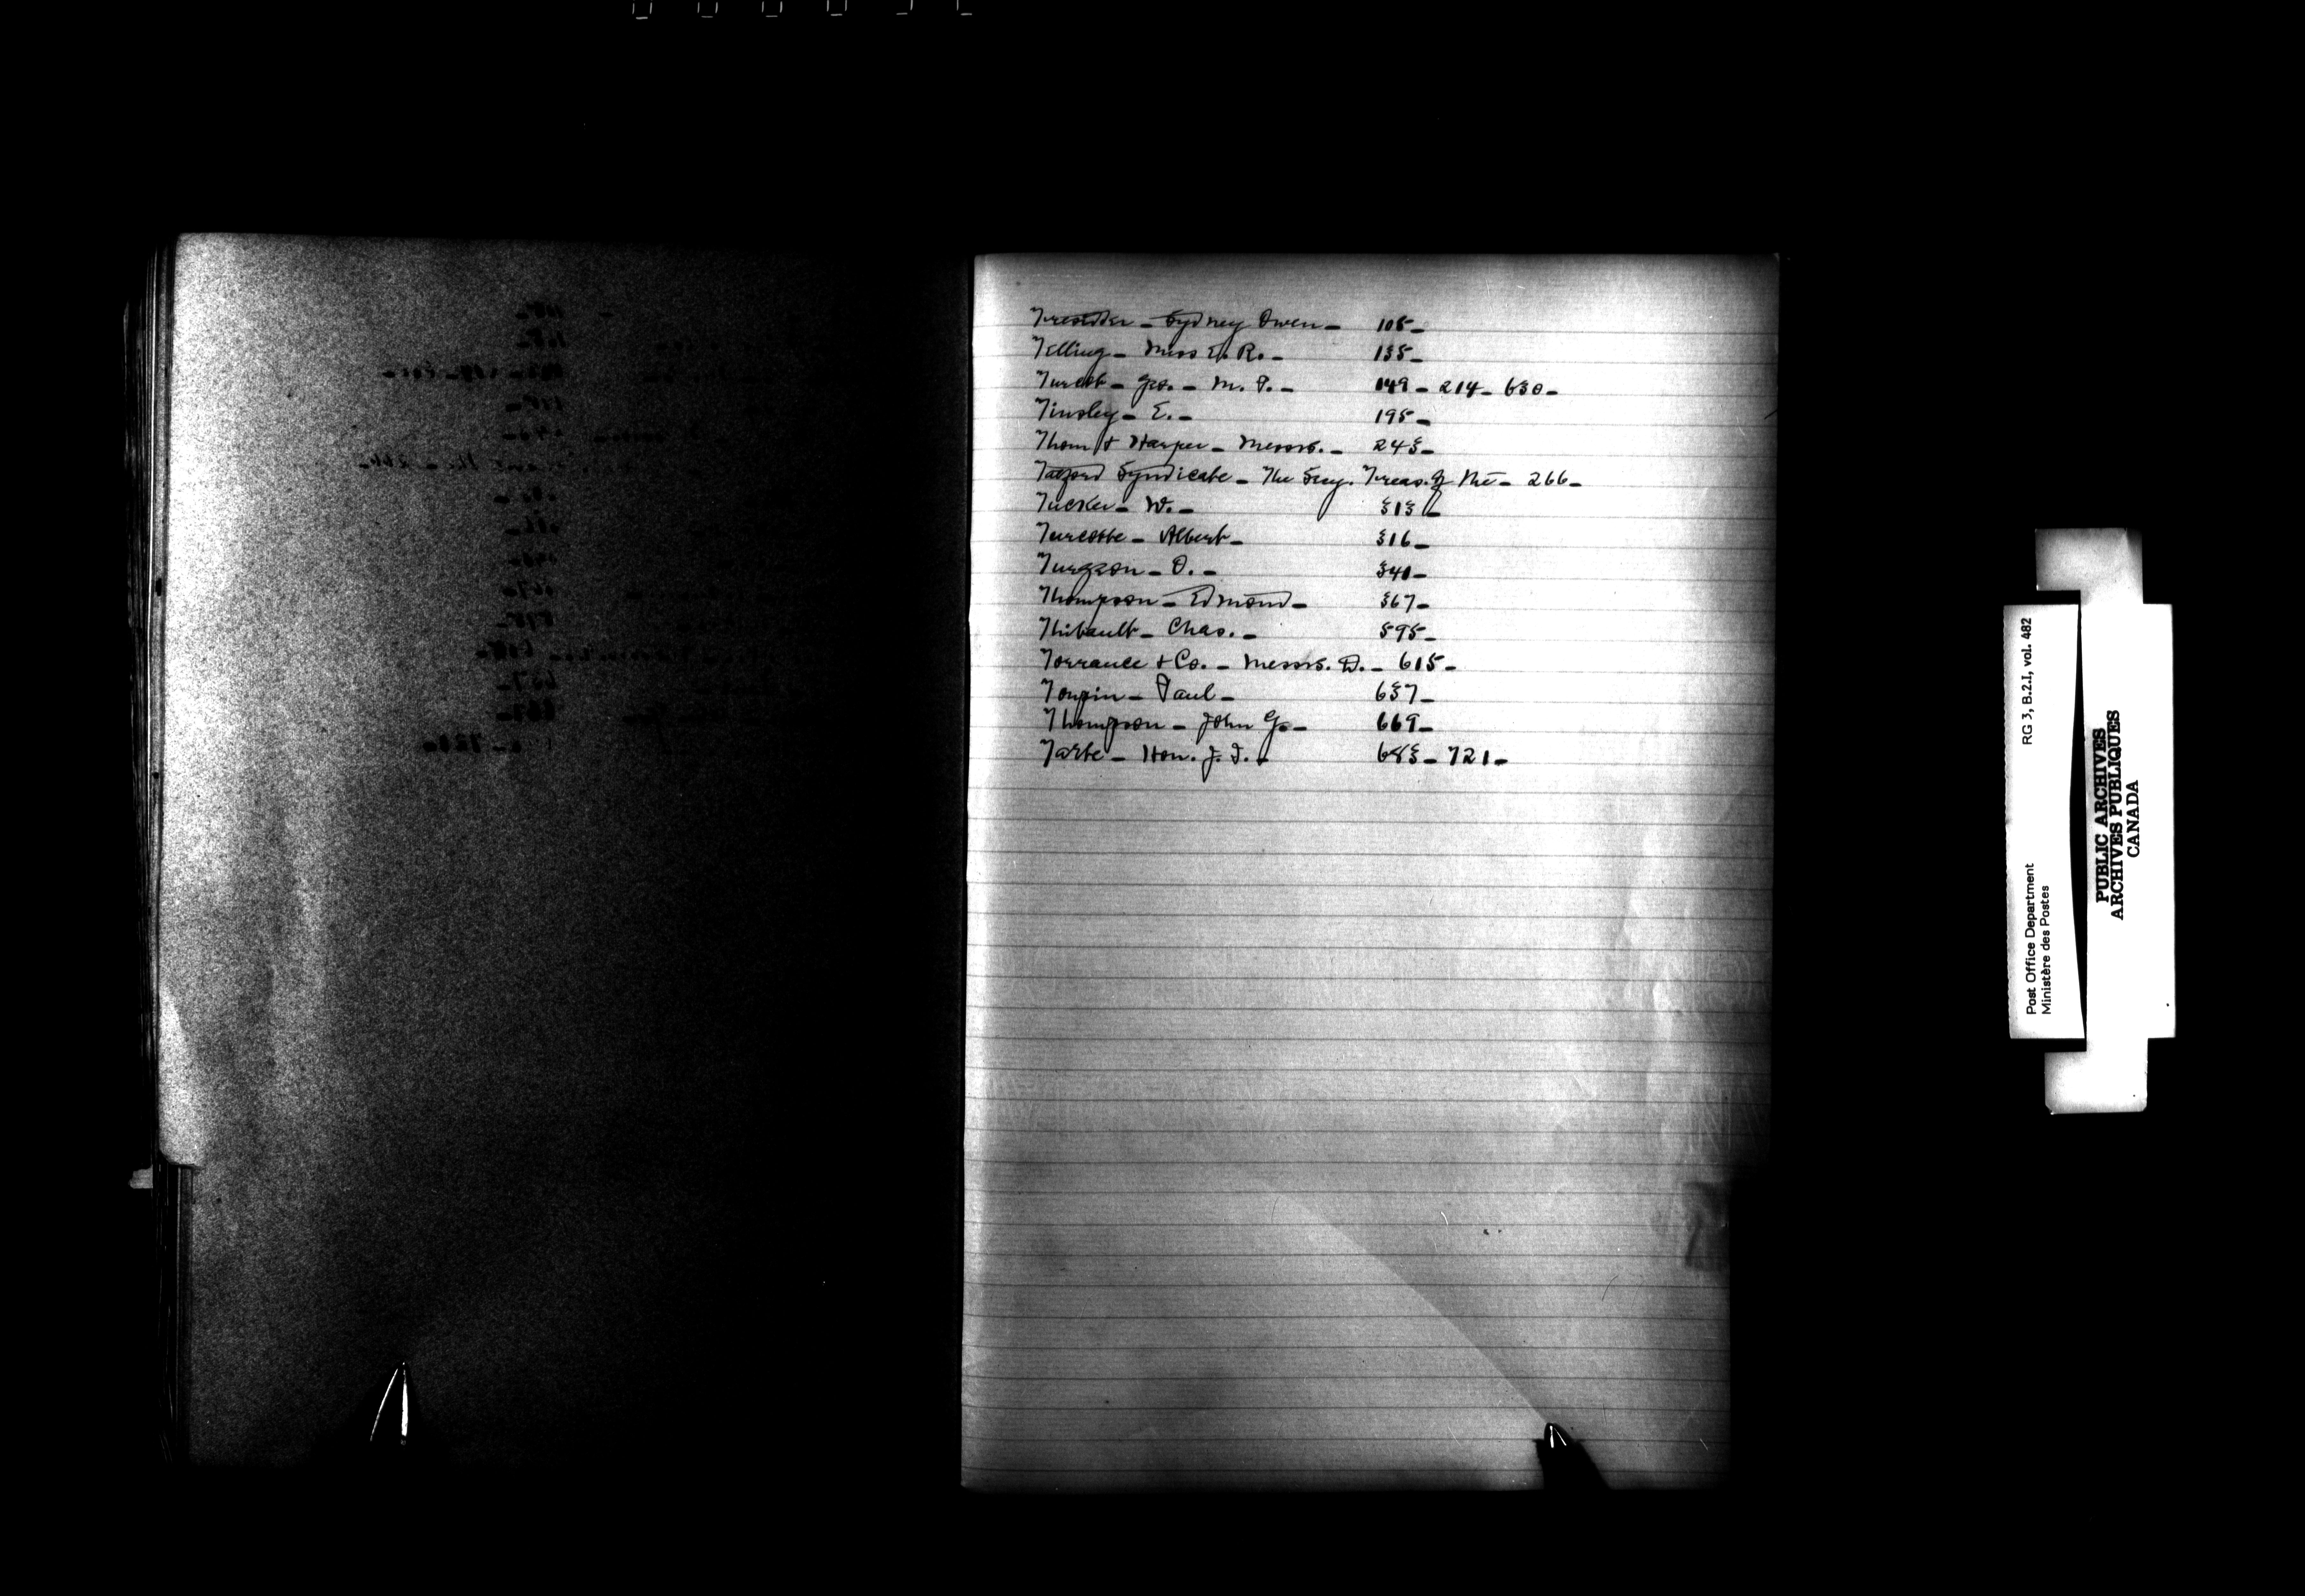 Tresidder - Sydney Owen - 105 -
Telling - Miss E. R. - 135 -
Turcot - Geo. - M. P. - 149 - 214 - 630 -
Tinsley - E. - 195 -
Thom & Harper - Messrs. - 243 -
Syndicate - The Secy. Treas. of the - 266 -
Tucker - W. - 313 -
Turcotte - Albert - 316 -
Turgeon - O. - 340 -
Thompson - Edmond - 367 -
Thibault - Chas. - 595 -
Torrance & Co. - Messrs. D. - 615 -
Toupin - Paul - 637 -
Thompson - John G. - 669 -
Tarte - Hon. J. I. - 683 - 721 -
T
Post Office Department RG 3, B.2.I, vol. 482
Ministère des Postes
PUBLIC ARCHIVES
ARCHIVES PUBLIQUES
CANADA